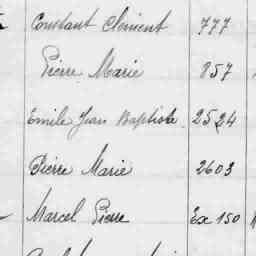 Constant Clément 777
Pierre Marie 857
Emile Jean Baptiste 2524
Pierre Marie 2603
Marcel Pierre Ex 150